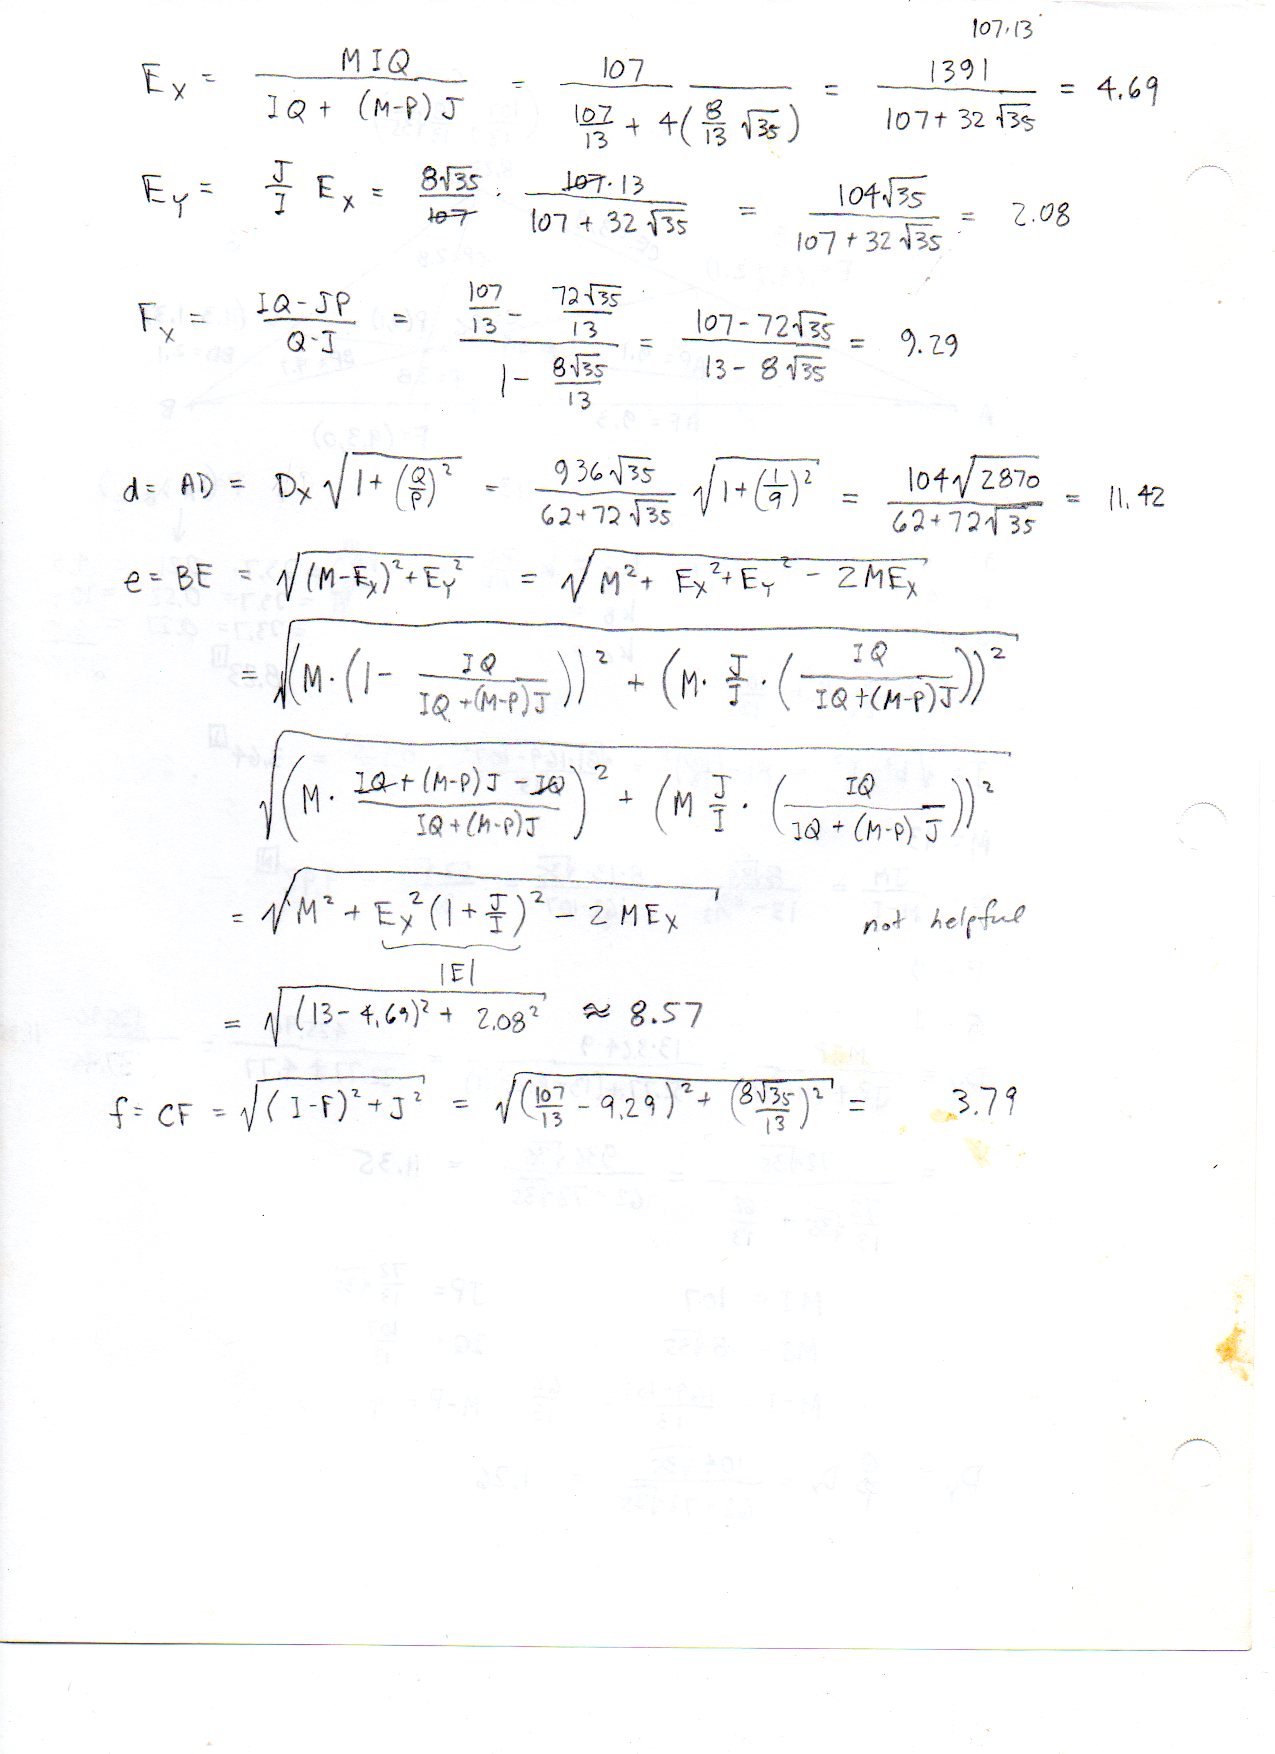 107·13
E_X = MIQ / (IQ + (M-P)J) = 107 / (107/13 + 4(8/13 √35)) = 1391 / (107 + 32√35) = 4.69
E_Y = J/I E_X = 8√35/107 · 107·13 / (107 + 32√35) = 104√35 / (107 + 32√35) = 2.08
F_X = (IQ-JP) / (Q-J) = (107/13 - 72√35/13) / (1 - 8√35/13) = (107-72√35) / (13-8√35) = 9.29
d = AD = D_X √(1+(Q/P)²) = 936√35 / (62+72√35) √(1+(1/9)²) = 104√2870 / (62+72√35) = 11.42
e = BE = √((M-E_X)²+E_Y²) = √(M²+ E_X²+E_Y² - 2ME_X)
= √((M·(1- IQ / (IQ+(M-P)J)))² + (M· J/I ·(IQ / (IQ+(M-P)J)))²)
√((M· (IQ+(M-P)J-IQ) / (IQ+(M-P)J))² + (M J/I ·(IQ / (IQ+(M-P)J)))²)
= √(M² + E_X²(1+J/I)² - 2ME_X) not helpful
|E|
= √((13-4.69)² + 2.08²) ≈ 8.57
f = CF = √((I-F)²+J²) = √((107/13 - 9.29)² + (8√35/13)²) = 3.79